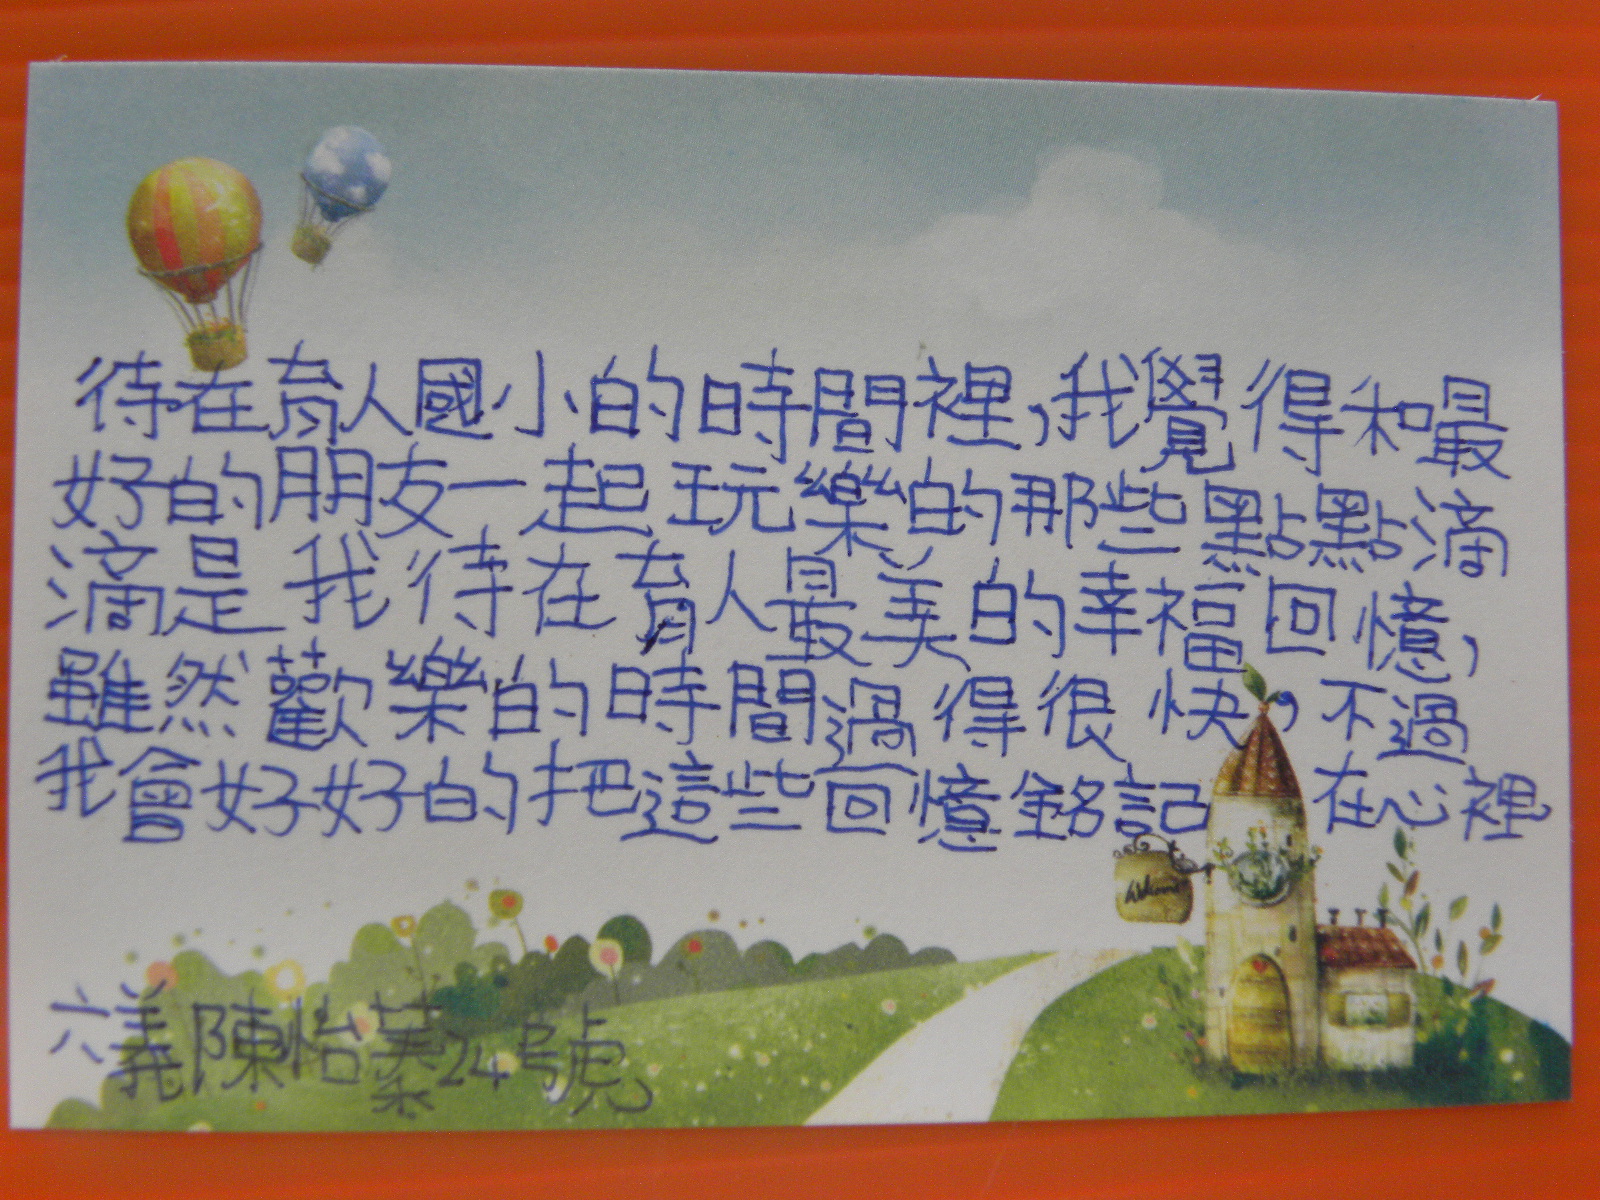 待在育人國小的時間裡,我覺得和最
好的朋友一起玩樂的那些點點滴
滴是我待在育人最美的幸福回憶,
雖然歡樂的時間過得很快,不過
我會好好的把這些回憶銘記在心裡
Welcome
六義陳怡蓁24號